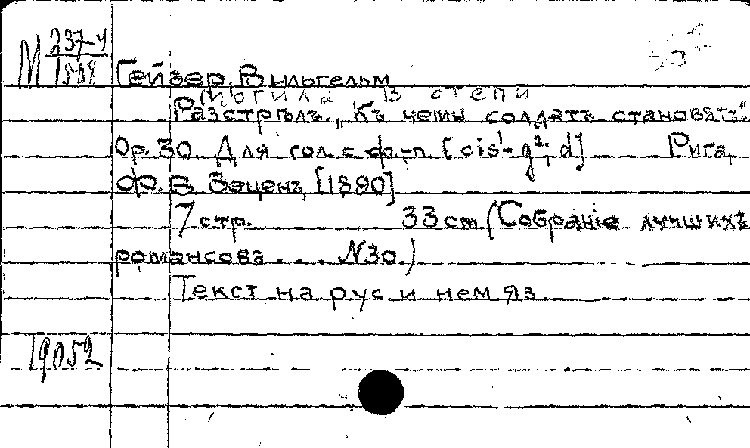 М 237-4
Гейзер, Вильгельм
Могила в степи
Разстрѣлъ. „Къ чему солдатъ становятъ".
Op. 30. Для гол. с ф.-п. [cis¹-g², d] Рига,
[1890]
7 стр. 33 cm (Собраніе лучшихъ
романсовъ . . . N30.)
Текст на рус и нем яз.
19052